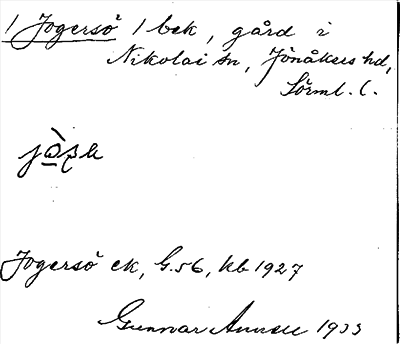 1 Jogersö 1 bek, gård i
Nikolai sn, Jönåkers hd,
Sörml. l.
Jogersö ek, G.56, kb 1927
Gunnar 1933